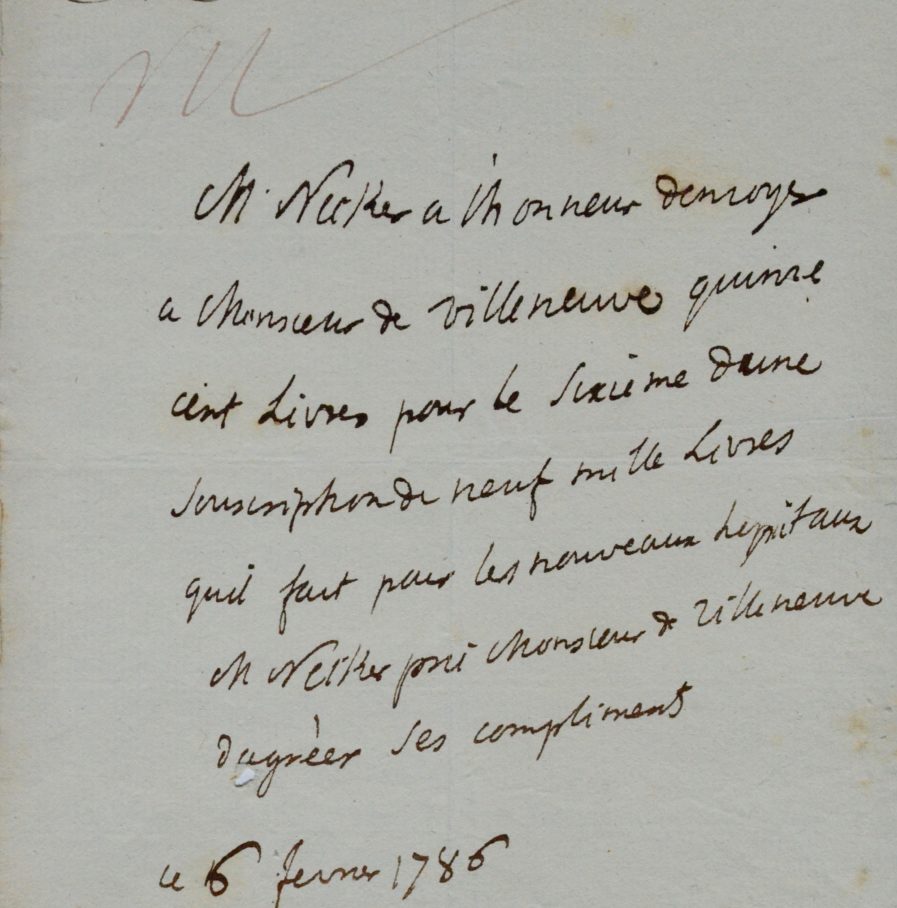 M. Necker a l'honneur denvoyer
a Monsieur de Villeneuve quinze
cent Livres pour le Sixième dune
Souscription de neuf mille Livres
quil fait pour les nouveaux hopitaux
M Necker prie Monsieur de Villeneuve
dagréer ses compliment
ce 6 fevrier 1786